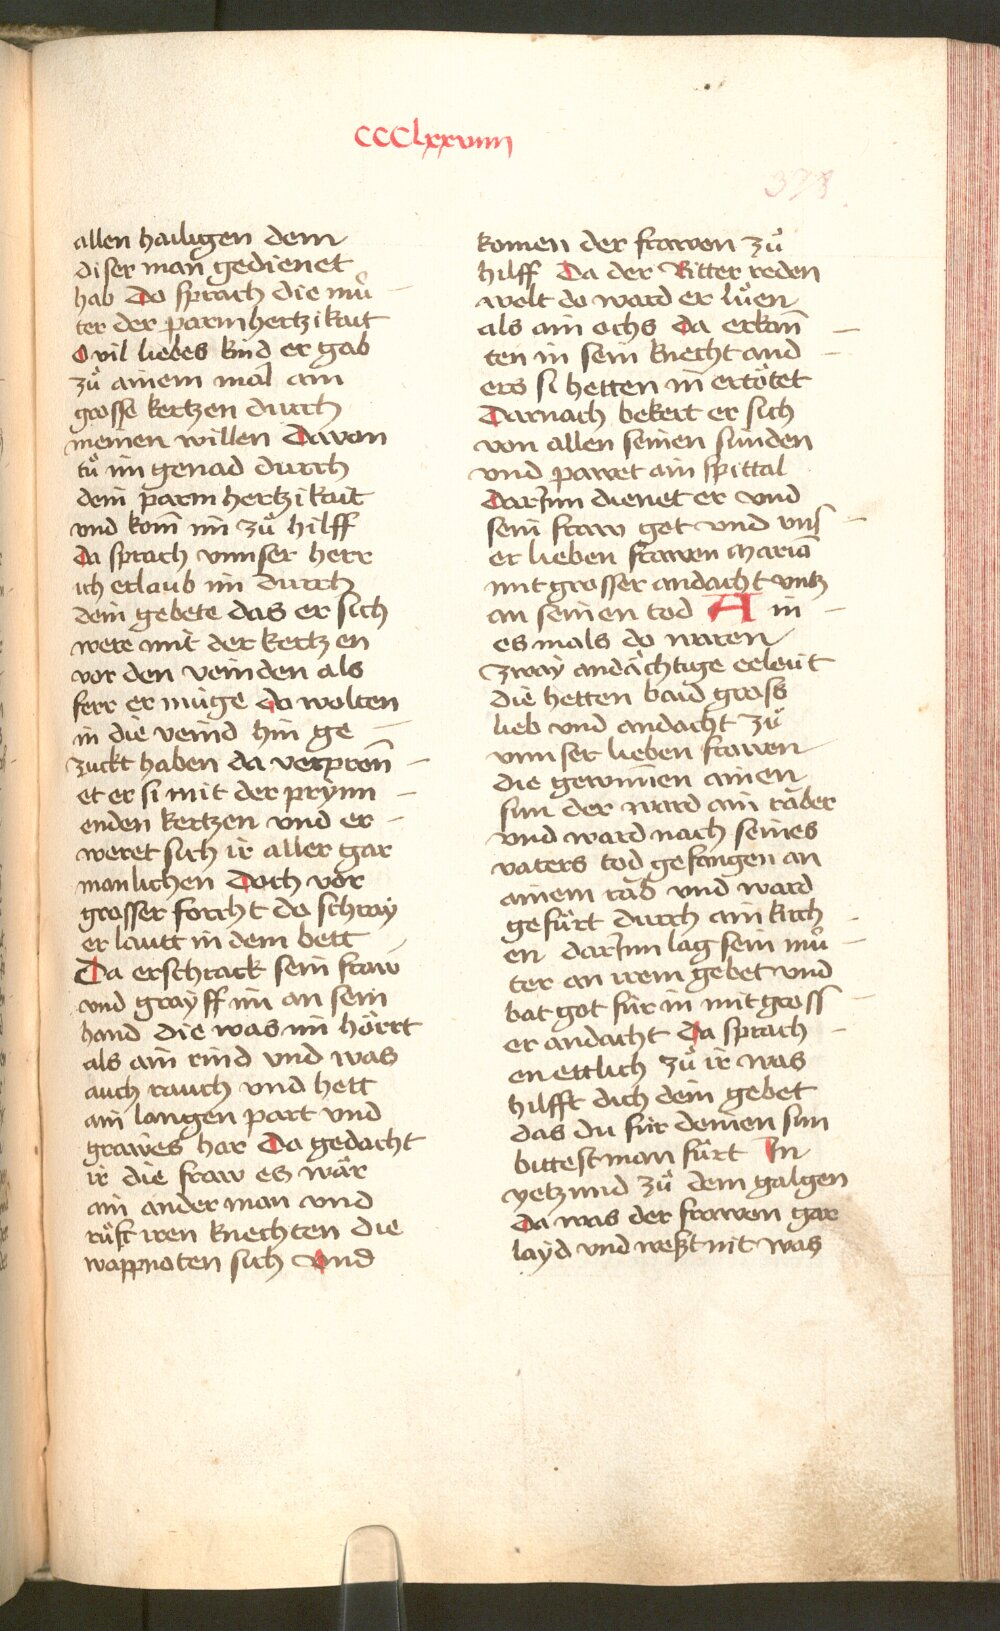 CCClxxviiii
378
allen hailigen dem
diser man gedienet
hab Do sprach die mů
ter der parmhertzikait
O vil liebes kind er gab
zů ainem mal ain
grosse kertzen durch
meinen willen Davon
tů im genad durch
dein parmhertzikait
vnd kom̄ im zů hilff
Da sprach vnnser herr
ich erlaub im durch
dein gebete das er sich
were mit der kertzen
vor den veinden als
ferr er müge do wolten
in die veind hin ge
zuckt haben da verpren̄
et er si mit der prynn
enden kertzen vnd er
weret sich ir aller gar
manlichen Doch vor
grosser forcht do schray
er lautt in dem bett
Da erschrack sein fraw
vnd grayff im an sein
hand die was im hörrt
als ain rind vnd was
auch rauch vnd hett
ain langen part vnd
grawes har Da gedacht
ir die fraw es wär
ain ander man vnd
rüfft iren knechten die
wappnoten sich vnd
komen der frawen zů
hilff Da der Ritter reden
wolt do ward er lůen
als ain ochs da erkan̄
ten in sein knecht and
ers si hetten in ertötet
Darnach bekert er sich
von allen seinen sünden
vnd pawet ain spittal
Darjnn dienet er vnd
sein fraw got vnd vns
er lieben frawen mariā
mit grosser andacht vntz
an seinen tod A in
es mals do waren
zway andächtige eeleut
die hetten baid gross
lieb vnd andacht zů
vnnser lieben frawen
die gewinnen ainen
sun der ward ain räber
vnd ward nach seines
vaters tod gefangen an
ainem rab vnd ward
gefürt durch ain kirch
en darjnn lag sein mů
ter an irem gebet vnd
bat got für in mit gross
er andacht Da sprach
en ettlich zů ir was
hilfft dich dein gebet
das du für deinen sun
bittest man fürt In
yetzund zů dem galgen
Da was der frawen gar
layd vnd weßt nit was